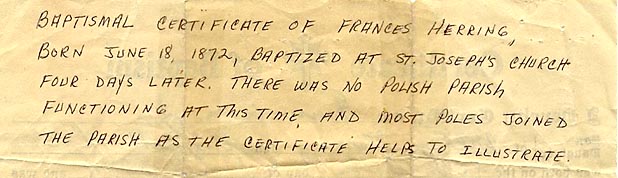 BAPTISMAL CERTIFICATE OF FRANCES HERRING,
BORN JUNE 18, 1872, BAPTIZED AT ST. JOSEPH'S CHURCH
FOUR DAYS LATER. THERE WAS NO POLISH PARISH
FUNCTIONING AT THIS TIME, AND MOST POLES JOINED
THE PARISH AS THE CERTIFICATE HELPS TO ILLUSTRATE.